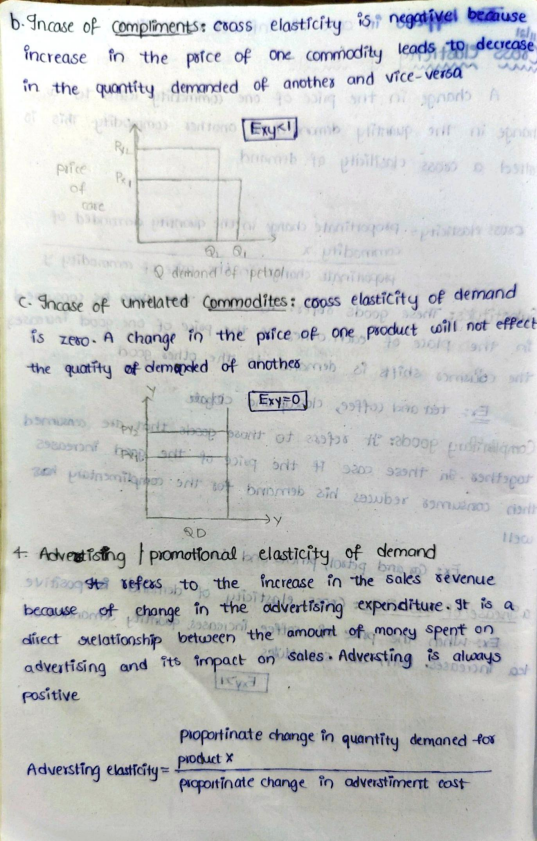 b. Incase of compliments: cross elasticity is negativel because
increase in the price of one commodity leads to decrease
in the quantity demanded of another and vice-versa
Exy<1
price
of
care
Q demand of petrol
C. Incase of unrelated Commodites: cross elasticity of demand
is zero. A change in the price of one product will not effect
the quatity of demanded of another
Y
Exy=0
Y
QD
4. Advertising / promotional elasticity of demand
It refers to the increase in the sales revenue
because of change in the advertising expenditure. It is a
direct relationship between the amount of money spent on
advertising and its impact on sales. Adversting is always
positive
Adversting elasticity =
proportinate change in quantity demaned for
product X
proportinate change in adverstiment cost